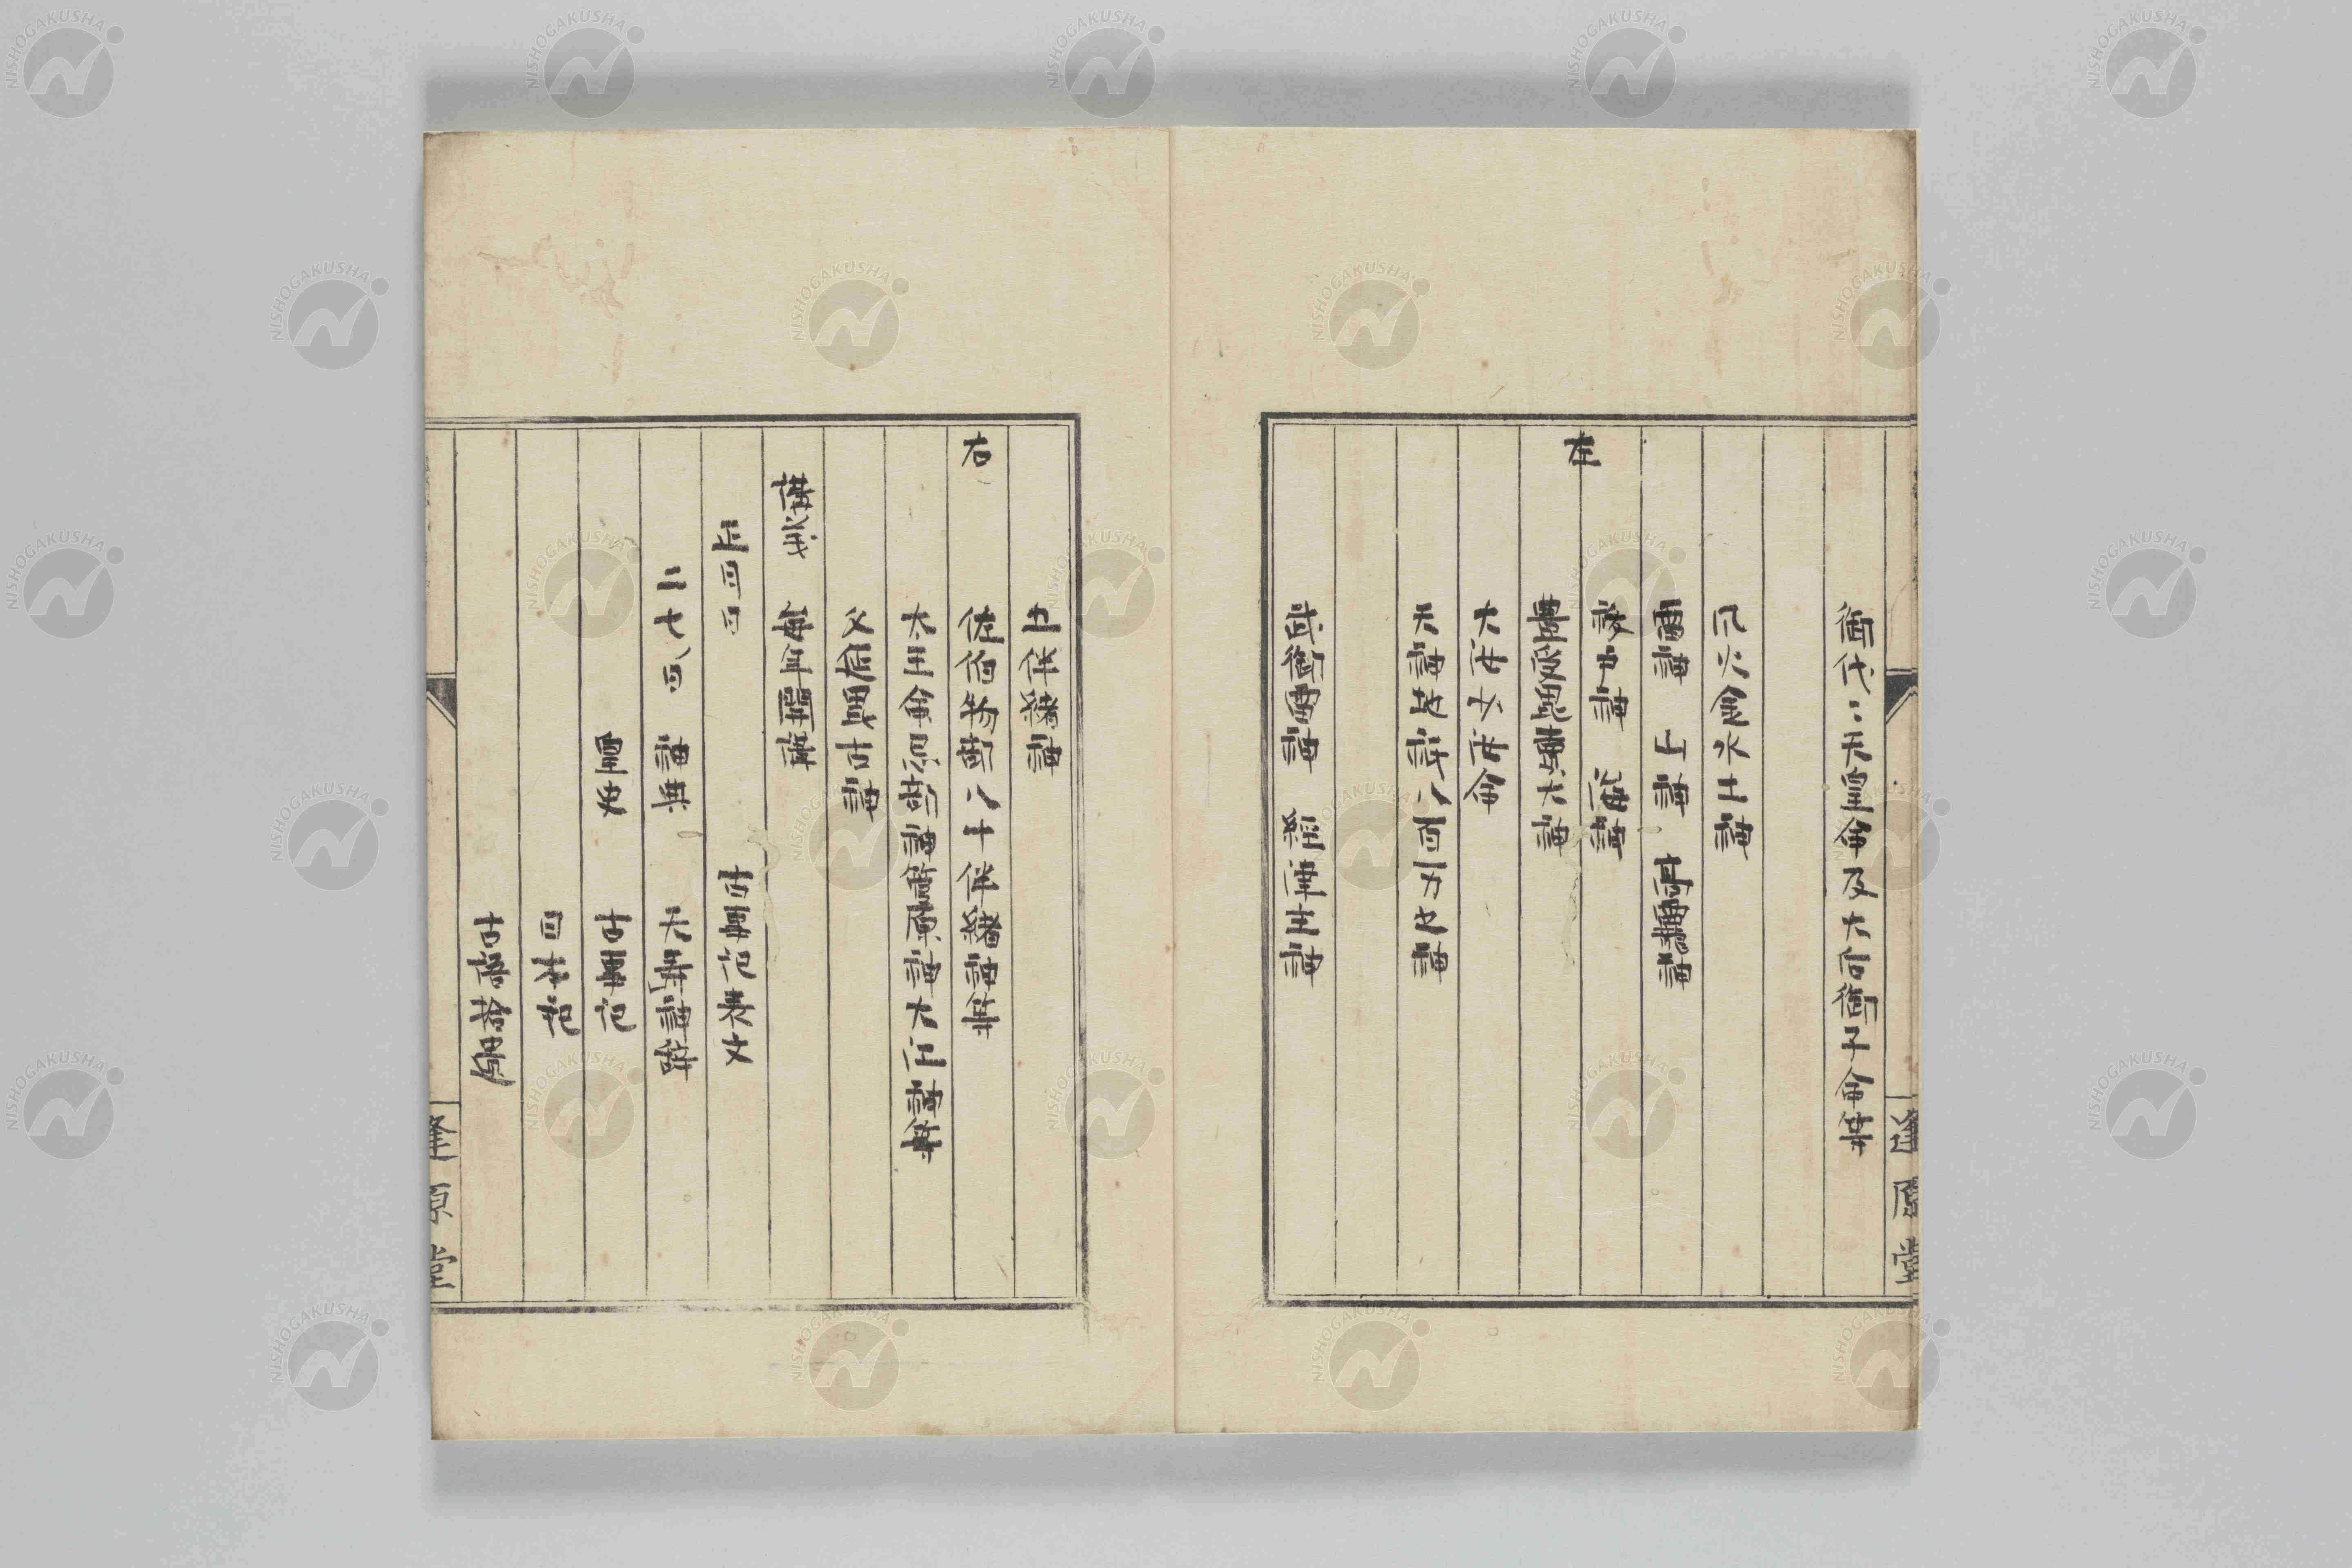 御代〻天皇命及大后御子命等
風火金水土神
雷神 上神 高靇神
左
彼中神 海神
豊受思兼大神
大汝少汝命
天神地祇八百万之神
武御雷神 経津主神
五伴緒神
右
佐伯物部八十伴緒神等
大王命忌部神菅原神大江神等
久延毘古神
講義 毎年開講
正月日 古事記表文
二七ノ日 神典 大祓神辞
皇史 古事記
日本紀
古語拾遺
逢原堂
逢原堂
NISHOGAKUSHA